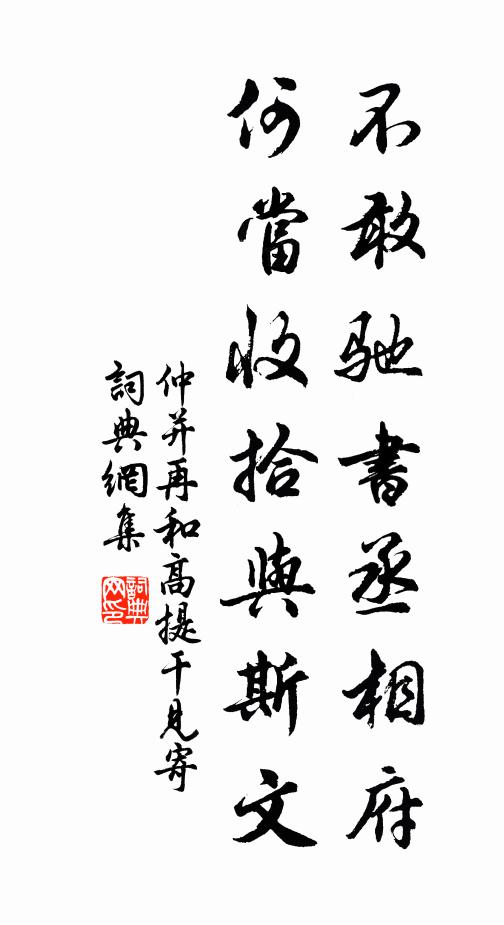 不敢馳書丞相府
何當收拾與斯文
仲并再和高提干見寄
詞典網集
詞典
网印